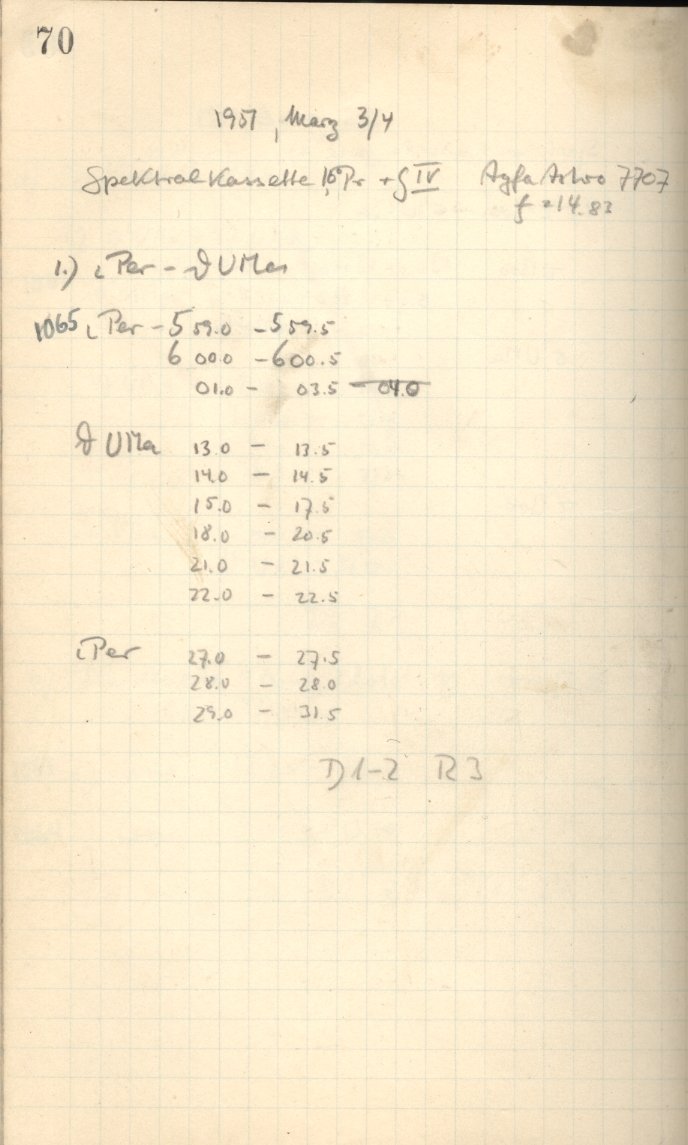 70
1951, März 3/4
Spektralkassette, 15° Pr + g IV Agfa Astro 7707
f = 14.83
1.) ι Per - ϑ UMa
1065 ι Per - 5 59.0 - 5 59.5
6 00.0 - 6 00.5
01.0 - 03.5 - 04.0
ϑ UMa 13.0 - 13.5
14.0 - 14.5
15.0 - 17.5
18.0 - 20.5
21.0 - 21.5
22.0 - 22.5
ι Per 27.0 - 27.5
28.0 - 28.0
29.0 - 31.5
D 1-2 R 3